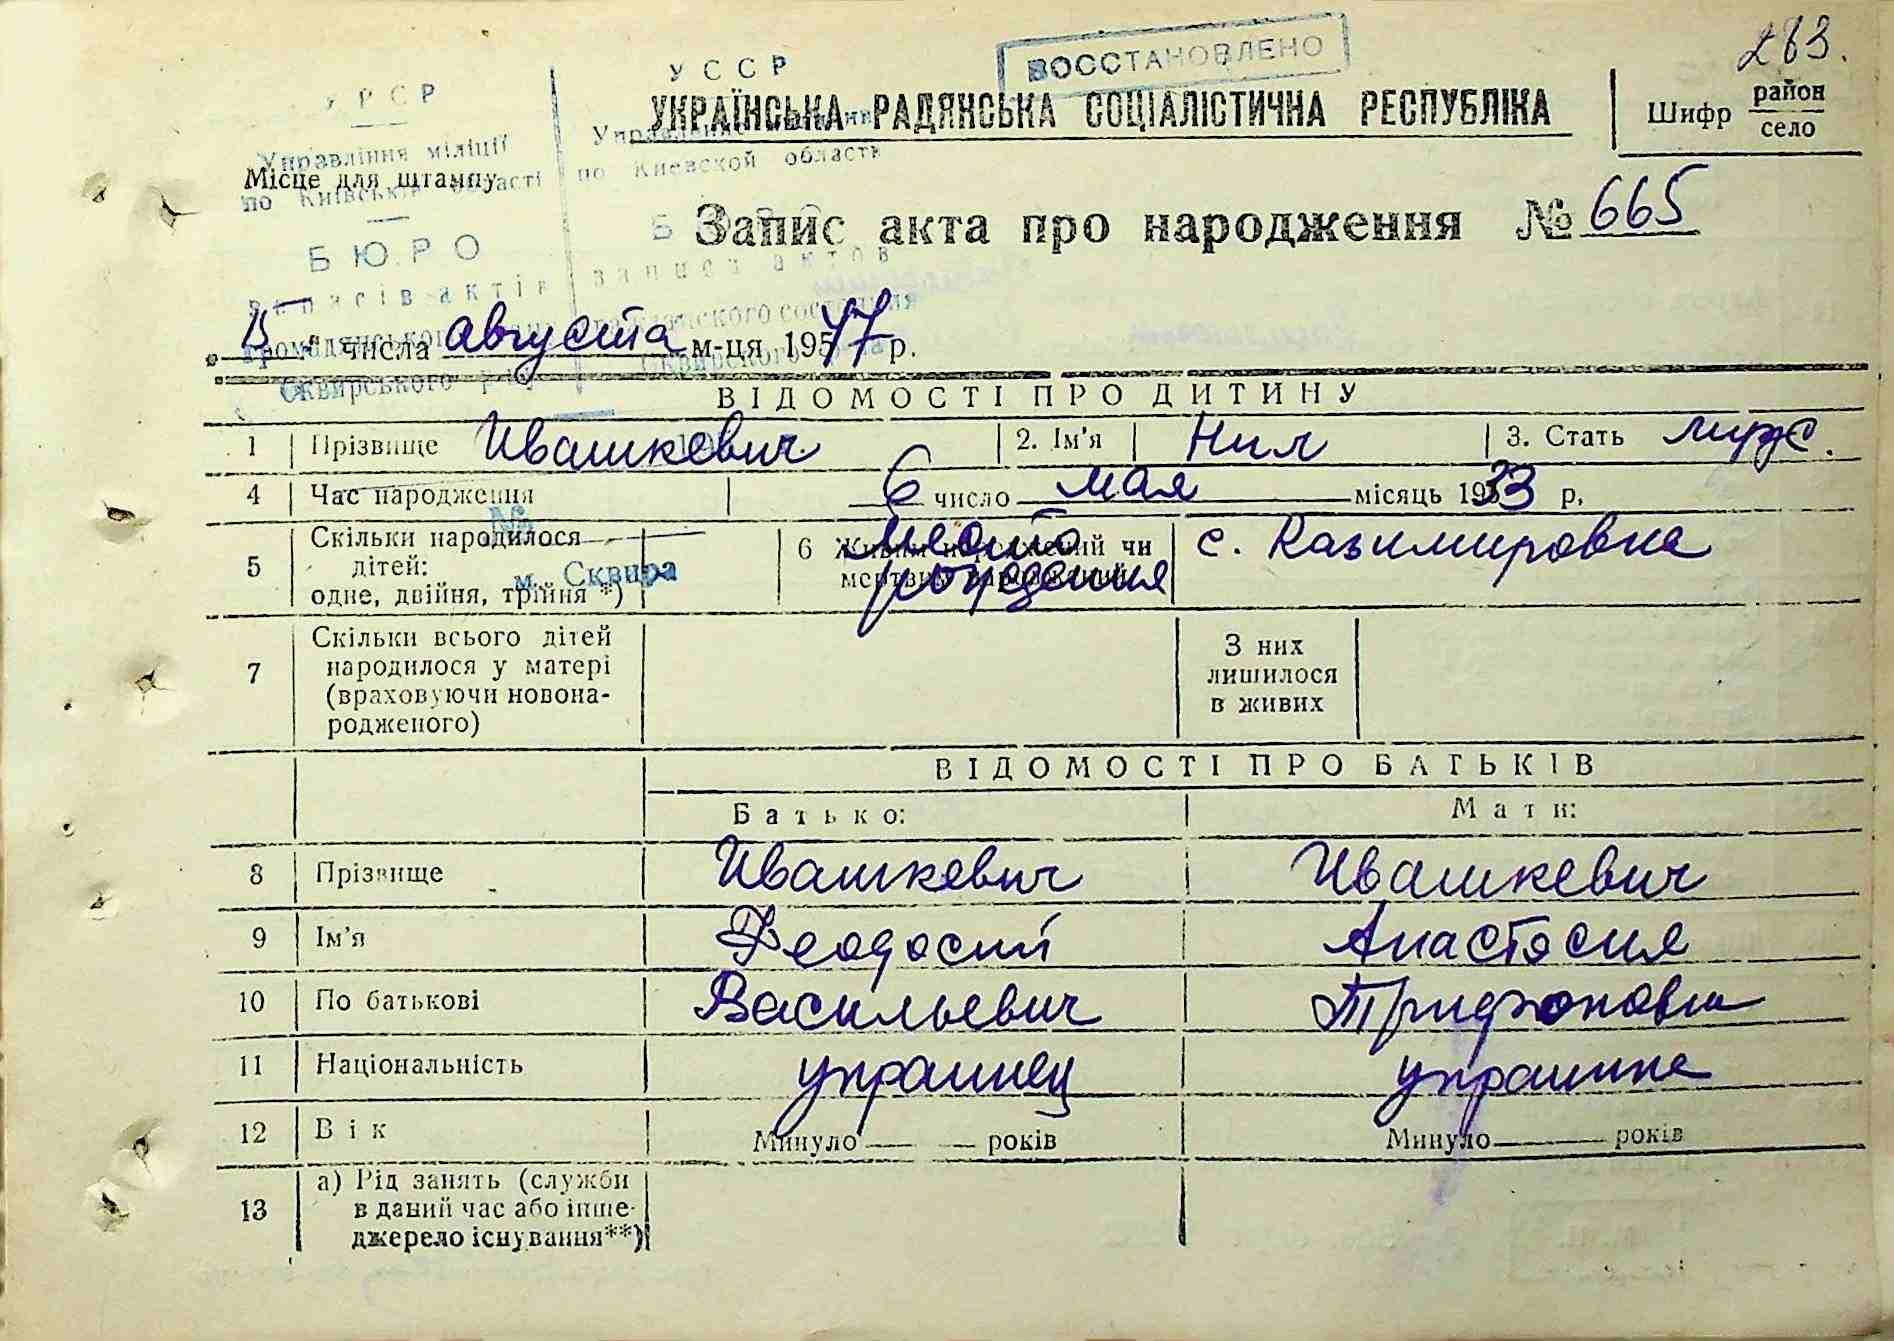 263.
ВОССТАНОВЛЕНО
УРСР
УССР
УКРАЇНСЬКА РАДЯНСЬКА СОЦІАЛІСТИЧНА РЕСПУБЛІКА
Шифр район
село
Управління міліції
по Київській області
по Киевской области
Місце для штампу
БЮРО
записів актів
записи актов
Сквирського
Сквирского
Запис акта про народження № 665
" числа августа м-ця 195 47 р.
ВІДОМОСТІ ПРО ДИТИНУ
1 Прізвище Ивашкевич 2. Ім'я Нил 3. Стать муж.
4 Час народження 6 число мая місяць 195 33 р.
№
5 Скільки народилося
дітей:
одне, двійня, трійня *)
м. Сквира
6 Живим народжений чи
мертвим народжений
Место
рождения
с. Казимировка
7 Скільки всього дітей
народилося у матері
(враховуючи новона-
родженого)
З них
лишилося
в живих
ВІДОМОСТІ ПРО БАТЬКІВ
Батько: Мати:
8 Прізвище Ивашкевич Ивашкевич
9 Ім'я Феодосий Анастасия
10 По батькові Васильевич Трифоновна
11 Національність украинец украинка
12 Вік Минуло років Минуло років
13 а) Рід занять (служби
в даний час або інше
джерело існування**)